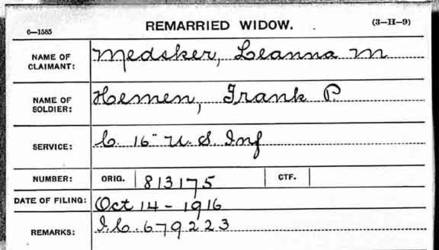 REMARRIED WIDOW.
6—1585
(3-11-9)
NAME OF CLAIMANT: Medsker, Leanna M
NAME OF SOLDIER: Hemen, Frank P.
SERVICE: C. 16" U.S. Inf
NUMBER: ORIG. 813175 CTF.
DATE OF FILING: Oct 14-1916
REMARKS: I.C. 679223